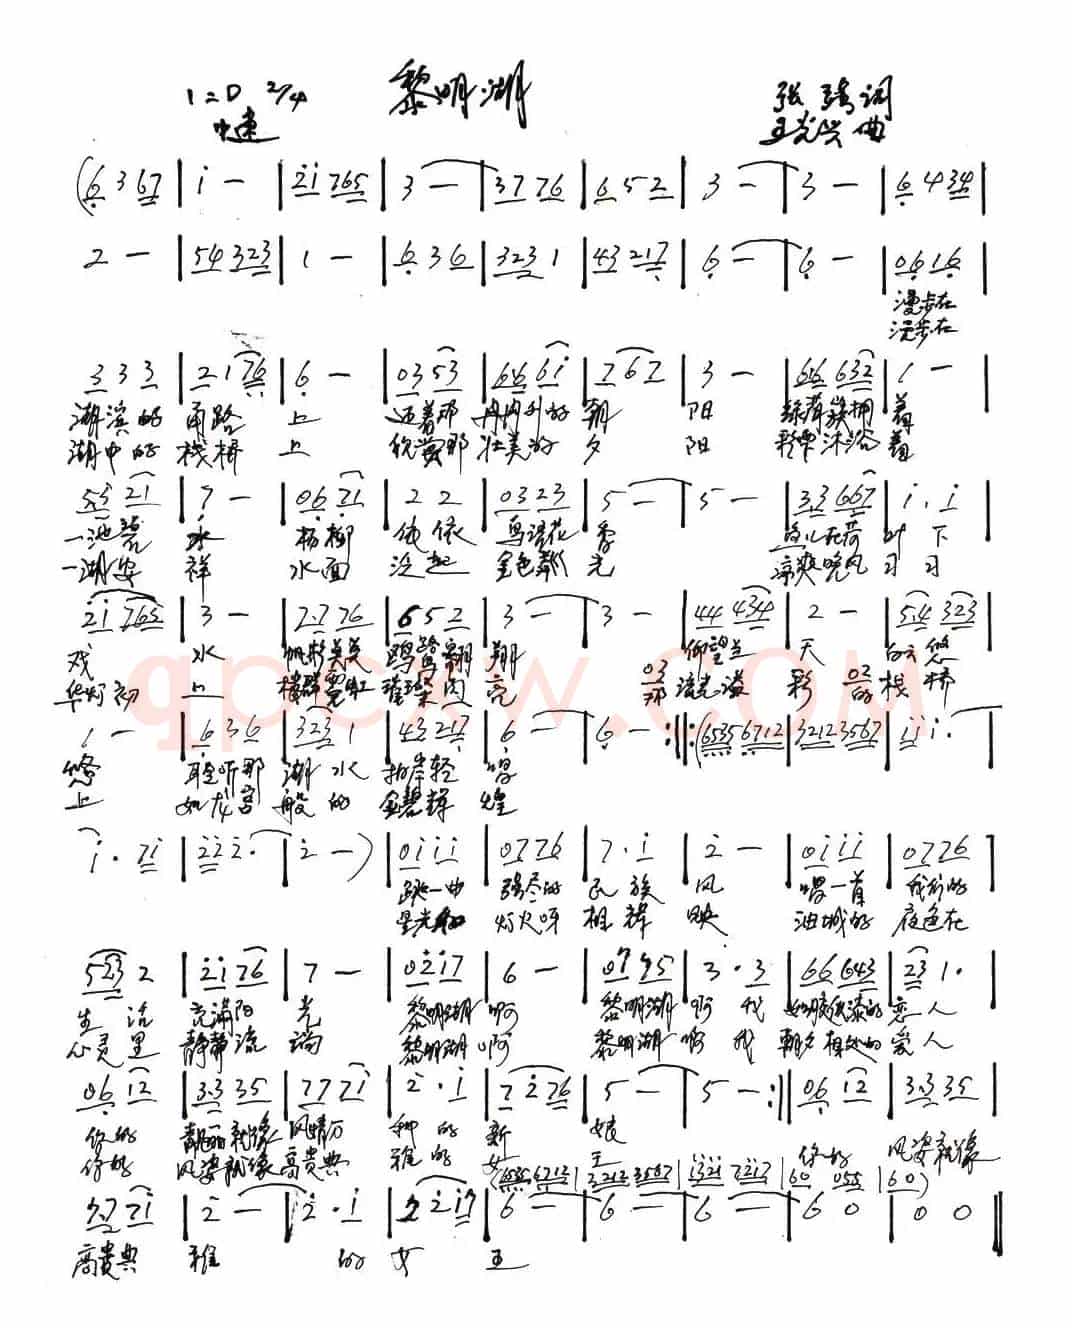 黎明湖
1=D 2/4
中速
张 词
王光 曲
(6 3 67 | i - | 2i 765 | 3 - | 37 76 | 6 5 2 | 3 - | 3 - | 6 4 34 |
2 - | 54 323 | 1 - | 6 3 6 | 323 1 | 43 217 | 6 - | 6 - | 06 16 |
漫步在
漫步在
3 3 3 | 2 1 76 | 6 - | 03 53 | 66 61 | 7 67 | 3 - | 66 632 | 1 - |
湖滨的 甬路 上 迎着那 冉冉升的 朝 阳 绿荷簇拥 着
湖中的 栈桥 上 欣赏那 壮美的 夕 阳 彩霞沐浴 着
55 21 | 7 - | 06 71 | 2 2 | 03 23 | 5 - | 5 - | 33 667 | i . i |
一池碧 水 杨柳 依依 鸟语花 香 鱼儿在荷 叶 下
一湖安 祥 水面 泛起 金色 光 凉爽晚风 习 习
2i 765 | 3 - | 7.7 76 | 6 5 2 | 3 - | 3 - | 44 434 | 2 - | 5.4 323 |
戏 水 帆影点点 鸥鹭翱 翔 仰望兰 天 白云悠
03 02
华灯初 上 楼群霓虹 璀璨闪 亮 那流光溢 彩 的栈桥
1 - | 6 3 6 | 323 1 | 43 217 | 6 - | 6 - :||: (6535 6712 | 3212 3567 | i i i . |
悠 聆听那 湖水 拍岸轻 唱
上 如龙宫 般的 金碧辉 煌
i . 7i | 2 2 2 . | 2 - ) | 0i i i | 07 76 | 7 . i | 2 - | 0i i i | 07 76 |
跳一曲 的 民族 风 唱一首 我们的
星光和 灯火呀 相辉 映 油城的 夜色在
523 2 | 2i 76 | 7 - | 02 17 | 6 - | 07 75 | 3 . 3 | 66 643 | 23 1 . |
生活 充满阳 光 黎明湖 啊 黎明湖 啊 我 如胶似漆的 恋人
心灵里 静静流 淌 黎明湖 啊 黎明湖 啊 我 朝夕相处的 爱人
06 12 | 3.3 35 | 77 7i | 2 . i | 7 2 76 | 5 - | 5 - :|| 06 12 | 3.3 35 |
你的 靓丽就像 风情万 种的 新 娘
你的 风姿就像 高贵典 雅的 女 王 你的 风姿就像
(6535 6712 | 3212 3567 | i32i 7217 | 60 055 | 60 )
7.7 7i | 2 - | 2 . i | 2 2 17 | 6 - | 6 - | 6 - | 6 0 | 0 0 ||
高贵典 雅 的 女 王
qpcxw.com